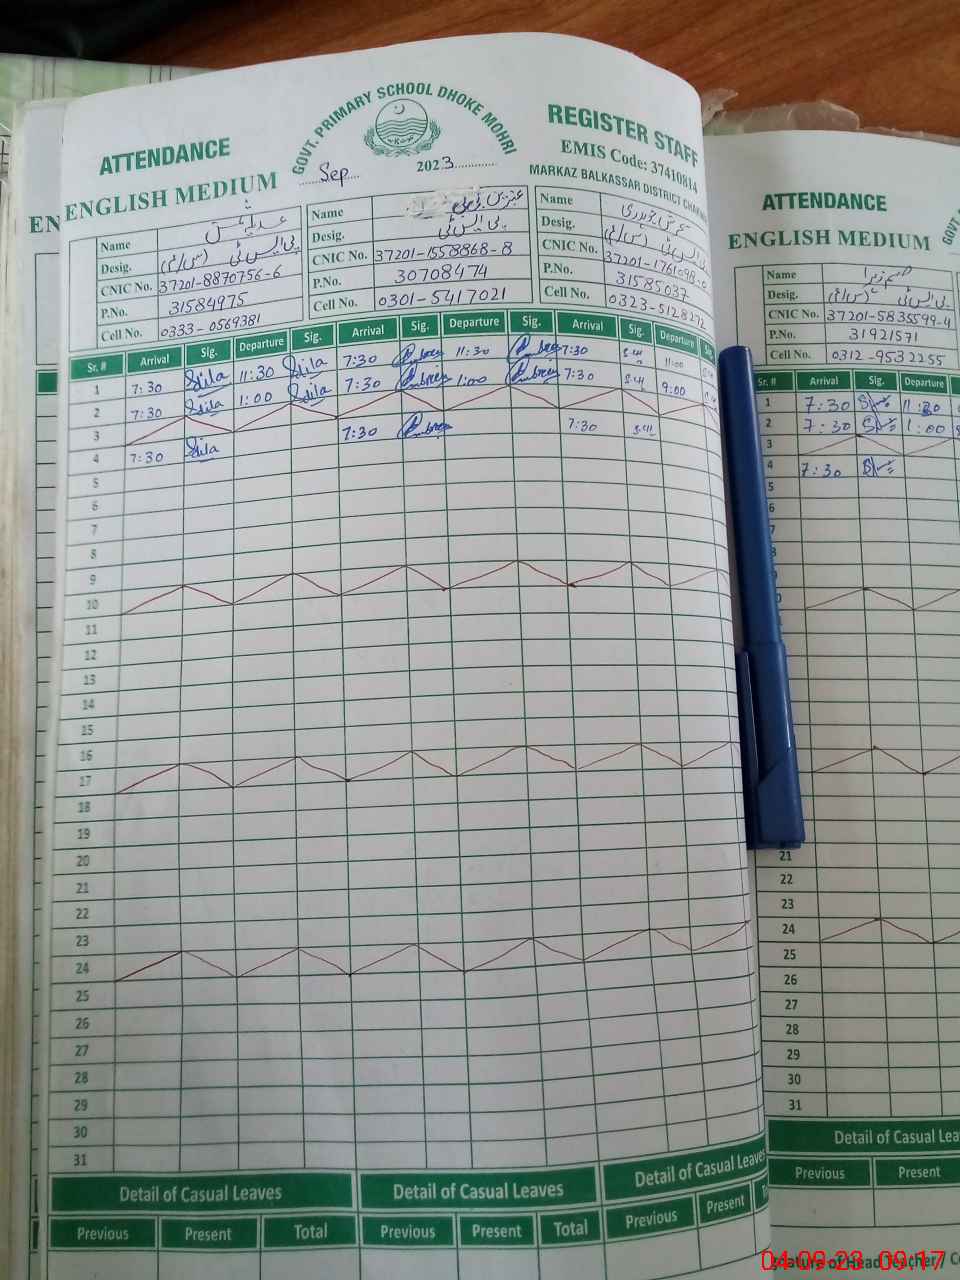 ATTENDANCE
GOVT. PRIMARY SCHOOL DHOKE MOHRI
REGISTER STAFF
ENGLISH MEDIUM
Sep 2023
EMIS Code: 37410814
MARKAZ BALKASSAR DISTRICT
Name
Desig. پی ایس ٹی
CNIC No. 37201-8870756-6
P.No. 31584975
Cell No. 0333-0569381
Name
Desig. پی ایس ٹی
CNIC No. 37201-1558868-8
P.No. 30708474
Cell No. 0301-5417021
Name
Desig.
CNIC No.
P.No. 31585037
Cell No. 0323-5128272
Sr. # Arrival Sig. Departure Sig. Arrival Sig. Departure Sig. Arrival Sig. Departure
1 7:30 11:30 7:30 11:30 7:30 11:00
2 7:30 1:00 7:30 1:00 7:30 9:00
3
4 7:30 7:30 7:30
5
6
7
8
9
10
11
12
13
14
15
16
17
18
19
20
21
22
23
24
25
26
27
28
29
30
31
Detail of Casual Leaves Detail of Casual Leaves Detail of Casual Leaves
Previous Present Total Previous Present Total Previous Present
ATTENDANCE
ENGLISH MEDIUM
Name
Desig. پی ایس ٹی
CNIC No. 37201-5835599-4
P.No. 31921571
Cell No. 0312-9532255
Sr. # Arrival Sig. Departure
1 7:30 11:30
2 7:30 1:00
3
4 7:30
5
6
7
8
21
22
23
24
25
26
27
28
29
30
31
Detail of Casual
Previous Present
of Head Teacher /
04-09-23 09:17